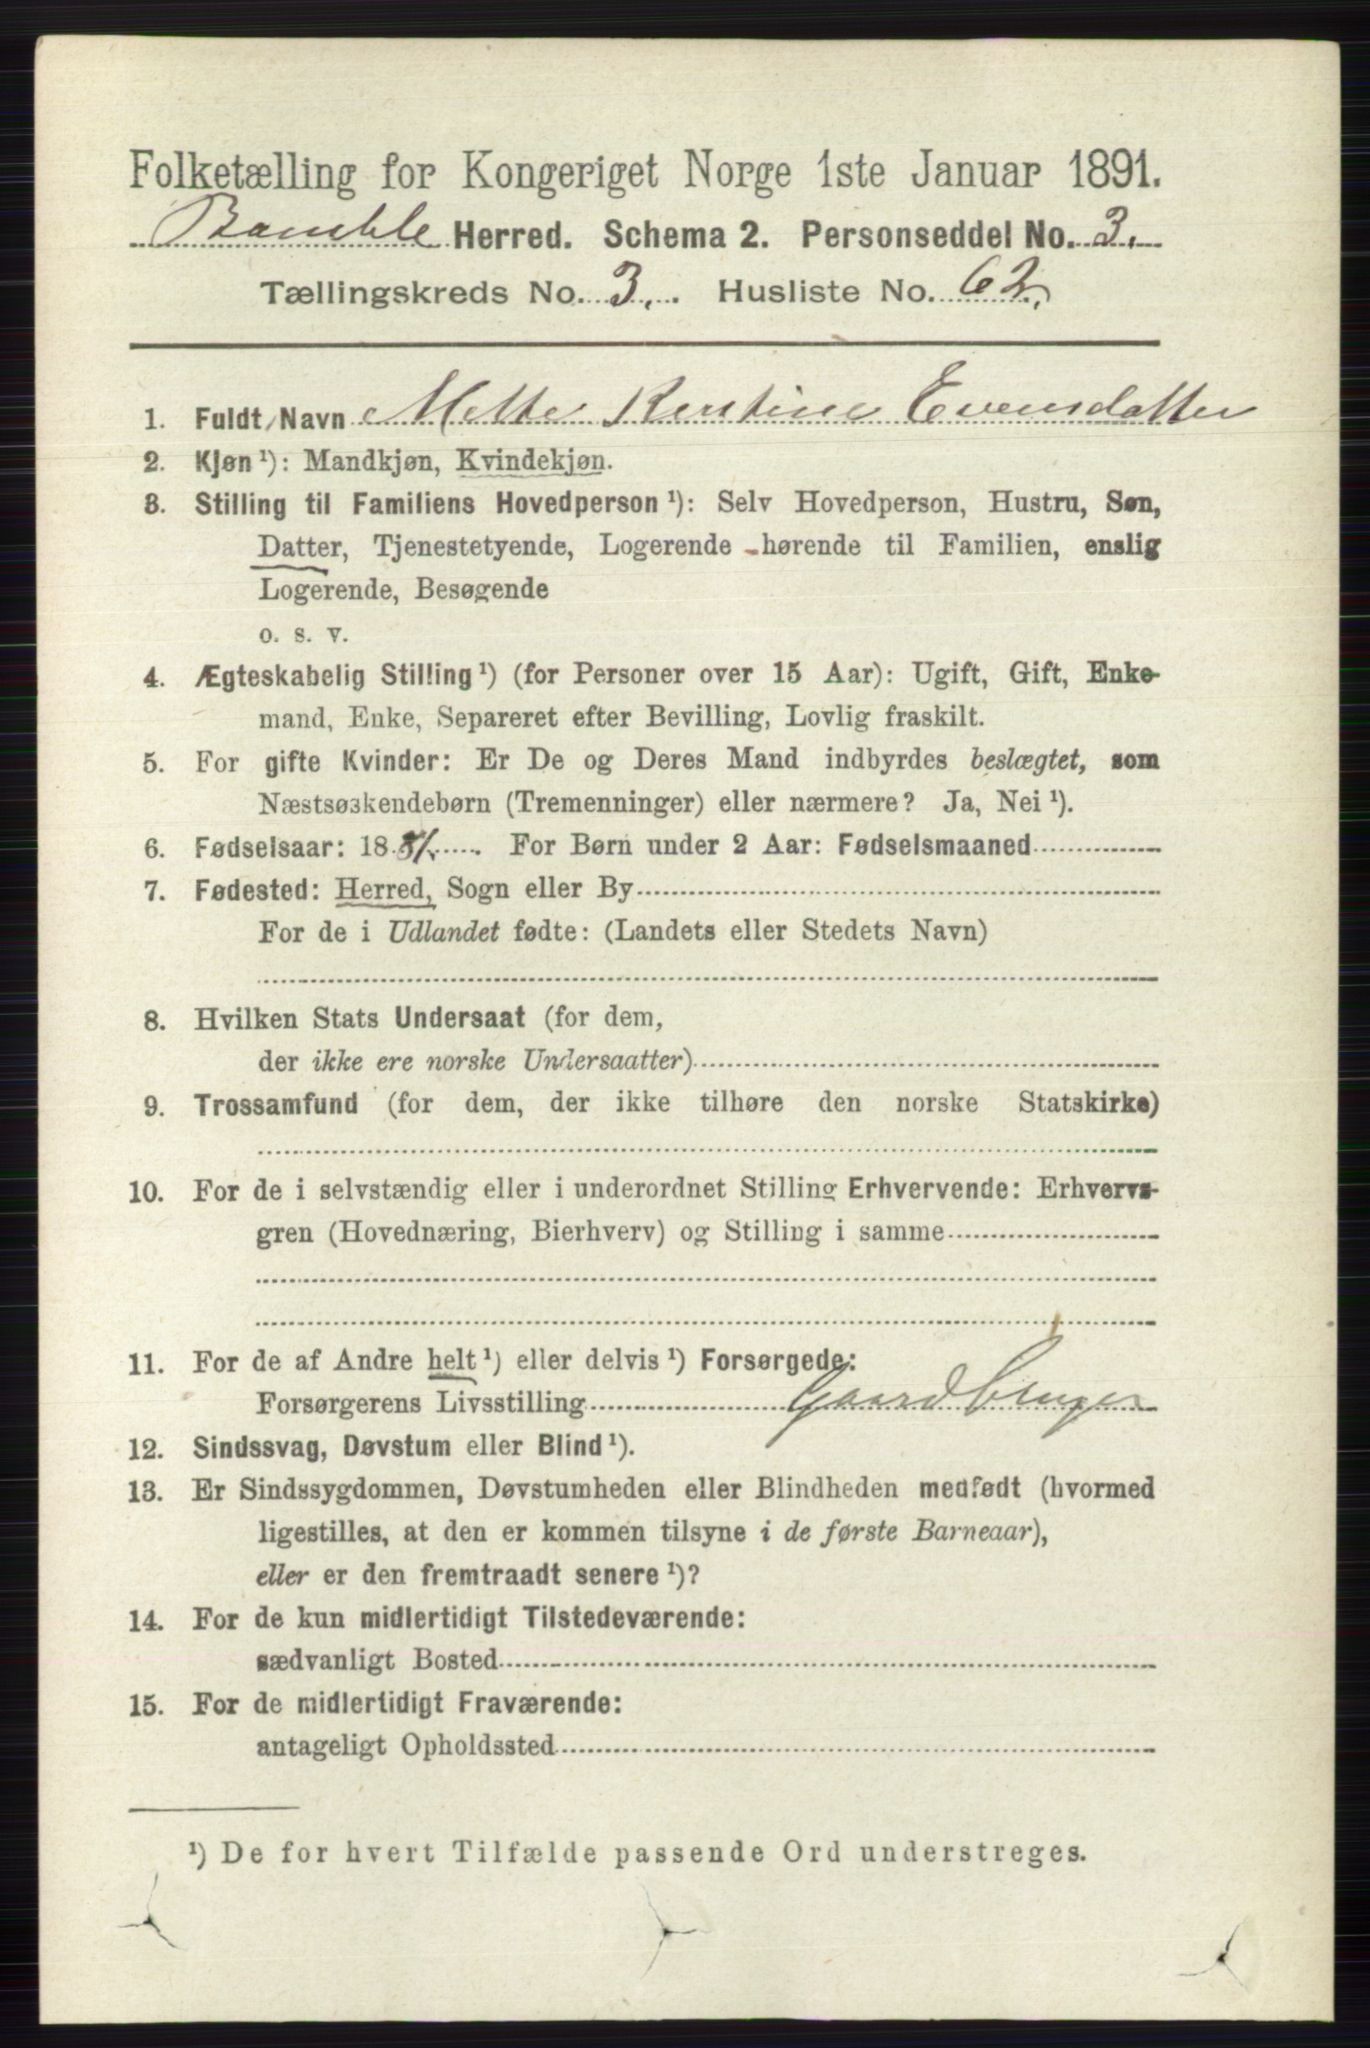 Folketælling for Kongeriget Norge 1ste Januar 1891.
Bamble Herred. Schema 2. Personseddel No. 3.
Tællingskreds No. 3. Husliste No. 62.
1. Fuldt Navn Mette Kirstine Evensdatter
2. Kjøn ¹): Mandkjøn, Kvindekjøn.
3. Stilling til Familiens Hovedperson ¹): Selv Hovedperson, Hustru, Søn,
Datter, Tjenestetyende, Logerende hørende til Familien, enslig
Logerende, Besøgende
o. s. v.
4. Ægteskabelig Stilling ¹) (for Personer over 15 Aar): Ugift, Gift, Enke-
mand, Enke, Separeret efter Bevilling, Lovlig fraskilt.
5. For gifte Kvinder: Er De og Deres Mand indbyrdes beslægtet, som
Næstsøskendebørn (Tremenninger) eller nærmere? Ja, Nei ¹).
6. Fødselsaar: 1881. For Børn under 2 Aar: Fødselsmaaned
7. Fødested: Herred, Sogn eller By
For de i Udlandet fødte: (Landets eller Stedets Navn)
8. Hvilken Stats Undersaat (for dem,
der ikke ere norske Undersaatter)
9. Trossamfund (for dem, der ikke tilhøre den norske Statskirke)
10. For de i selvstændig eller i underordnet Stilling Erhvervende: Erhvervs-
gren (Hovednæring, Bierhverv) og Stilling i samme
11. For de af Andre helt ¹) eller delvis ¹) Forsørgede:
Forsørgerens Livsstilling Gaardbruger
12. Sindssvag, Døvstum eller Blind ¹).
13. Er Sindssygdommen, Døvstumheden eller Blindheden medfødt (hvormed
ligestilles, at den er kommen tilsyne i de første Barneaar),
eller er den fremtraadt senere ¹)?
14. For de kun midlertidigt Tilstedeværende:
sædvanligt Bosted
15. For de midlertidigt Fraværende:
antageligt Opholdssted
¹) De for hvert Tilfælde passende Ord understreges.